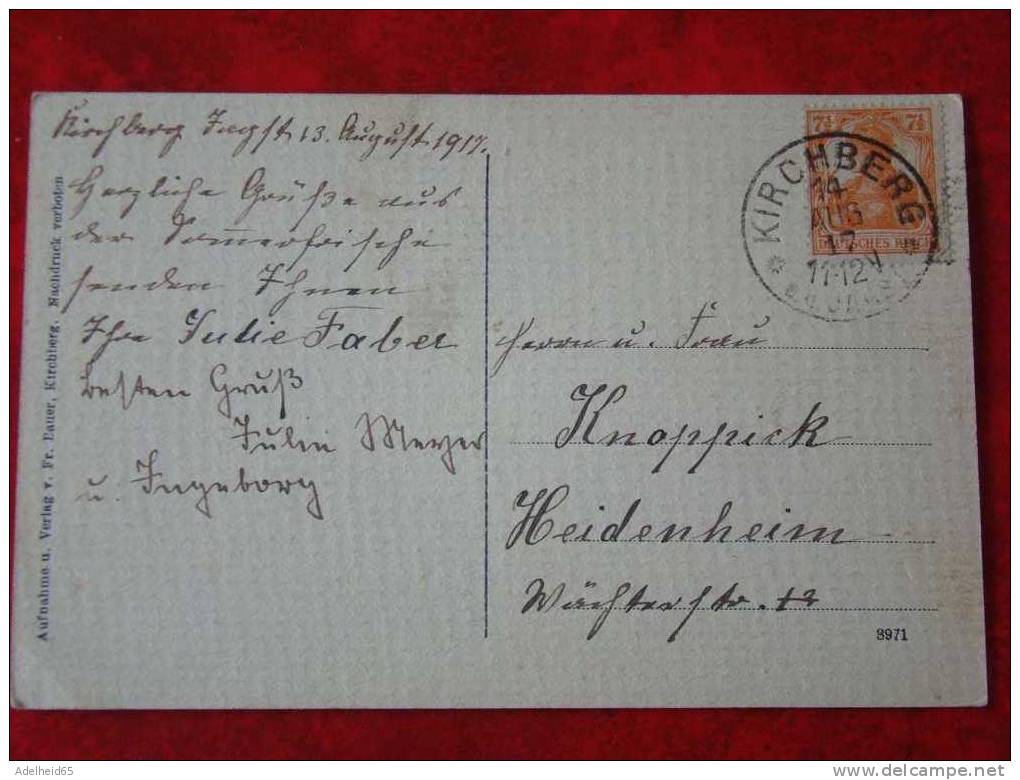 Kirchberg Jagst 13. August 1917.
Herzliche Grüße aus
der Sommerfrische
senden Ihnen
Ihre Julie Faber
besten Gruß
Julie Meyer
u. Ingeborg
Aufnahme u. Verlag v. Fr. Bauer, Kirchberg. Nachdruck verboten
7½ 7½
DEUTSCHES REICH
KIRCHBERG
14
AUG
17
11-12V
a.d. JAGST
Herrn u. Frau
Knoppick
Heidenheim
Wächterstr. 12
3971
Adelheid65
www.delcampe.net